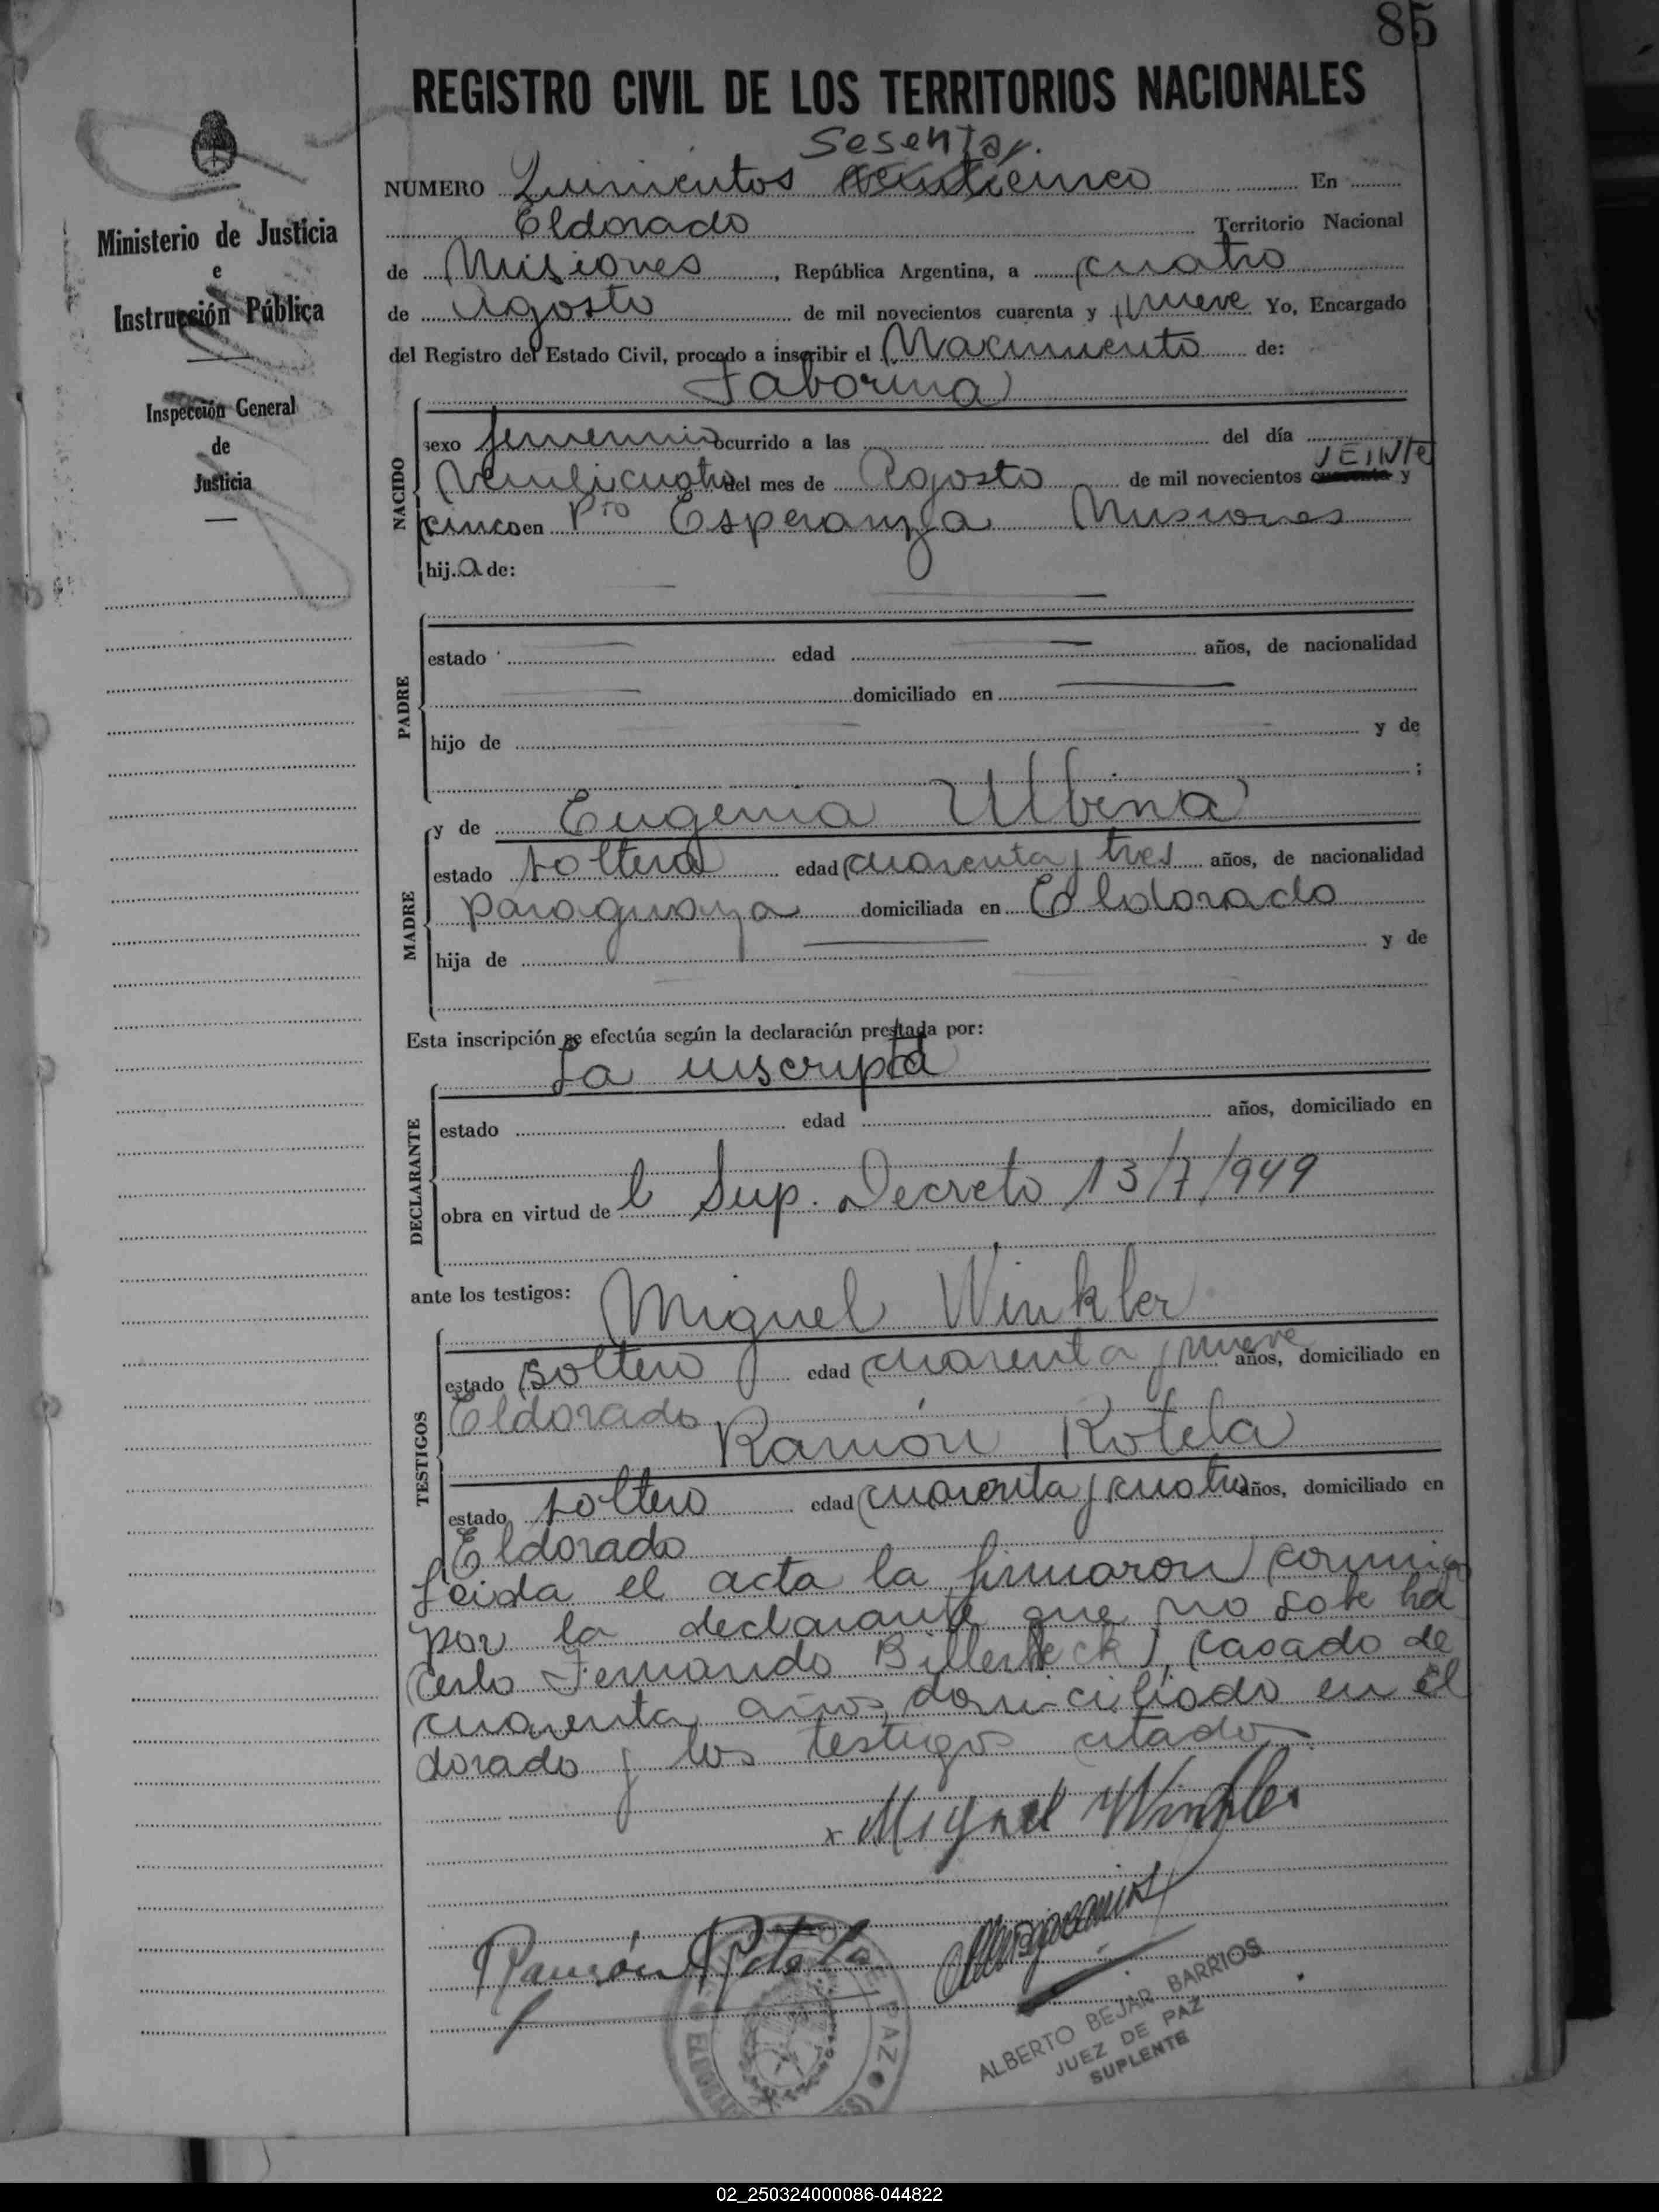 85
REGISTRO CIVIL DE LOS TERRITORIOS NACIONALES
Sesenta y
NUMERO Quinientos veinticinco En
Eldorado Territorio Nacional
de Misiones, República Argentina, a cuatro
de Agosto de mil novecientos cuarenta y nueve Yo, Encargado
del Registro del Estado Civil, procedo a inscribir el Nacimiento de:
Ministerio de Justicia
e
Instrucción Pública
Inspección General
de
Justicia
Faborina
NACIDO
sexo femenino ocurrido a las del día
VEINTE
veinticuatro del mes de Agosto de mil novecientos cuarenta y
cinco en Pto Esperanza Misiones
hija de:
PADRE
estado edad años, de nacionalidad
domiciliado en
hijo de y de
;
y de Eugenia Albina
MADRE
estado soltera edad cuarenta y tres años, de nacionalidad
paraguaya domiciliada en Eldorado
hija de y de
Esta inscripción se efectúa según la declaración prestada por:
La inscripta
DECLARANTE
estado edad años, domiciliado en
obra en virtud de l Sup. Decreto 13/7/949
ante los testigos: Miguel Winkler
TESTIGOS
estado soltero edad cuarenta y nueve años, domiciliado en
Eldorado
Ramón Rotela
estado soltero edad cuarenta y cuatro años, domiciliado en
Eldorado
Leida el acta la firmaron conmigo
por la declarante que no sabe ha
cerlo Fernando Billerbeck, casado de
cuarenta años, domiciliado en El
dorado y los testigos citados
Miguel Winkler
Ramón Rotela
ALBERTO BEJAR BARRIOS
JUEZ DE PAZ
SUPLENTE
02_250324000086-044822